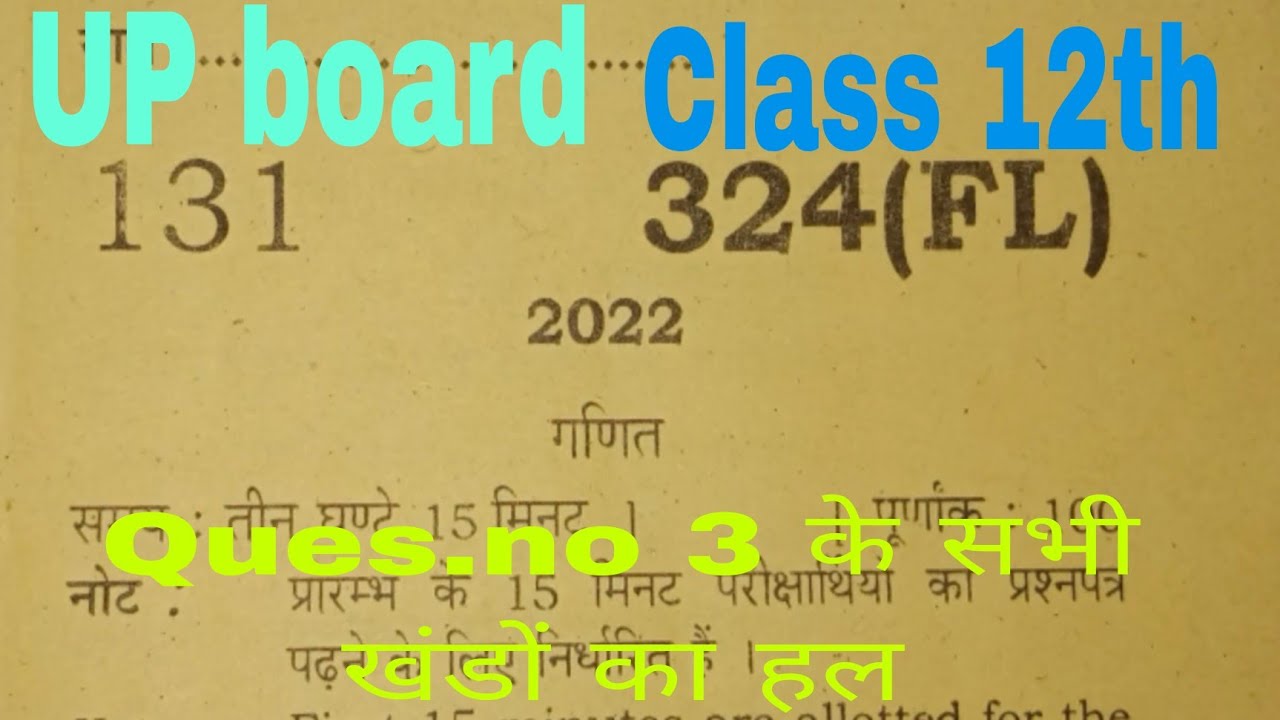 UP board Class 12th
131 324(FL)
2022
गणित
समय : तीन घण्टे 15 मिनट । । पूर्णांक : 100
Ques.no 3 के सभी
नोट : प्रारम्भ के 15 मिनट परीक्षार्थियों को प्रश्नपत्र
पढ़ने के लिए निर्धारित हैं ।
खंडों का हल
First 15 minutes are allotted for the